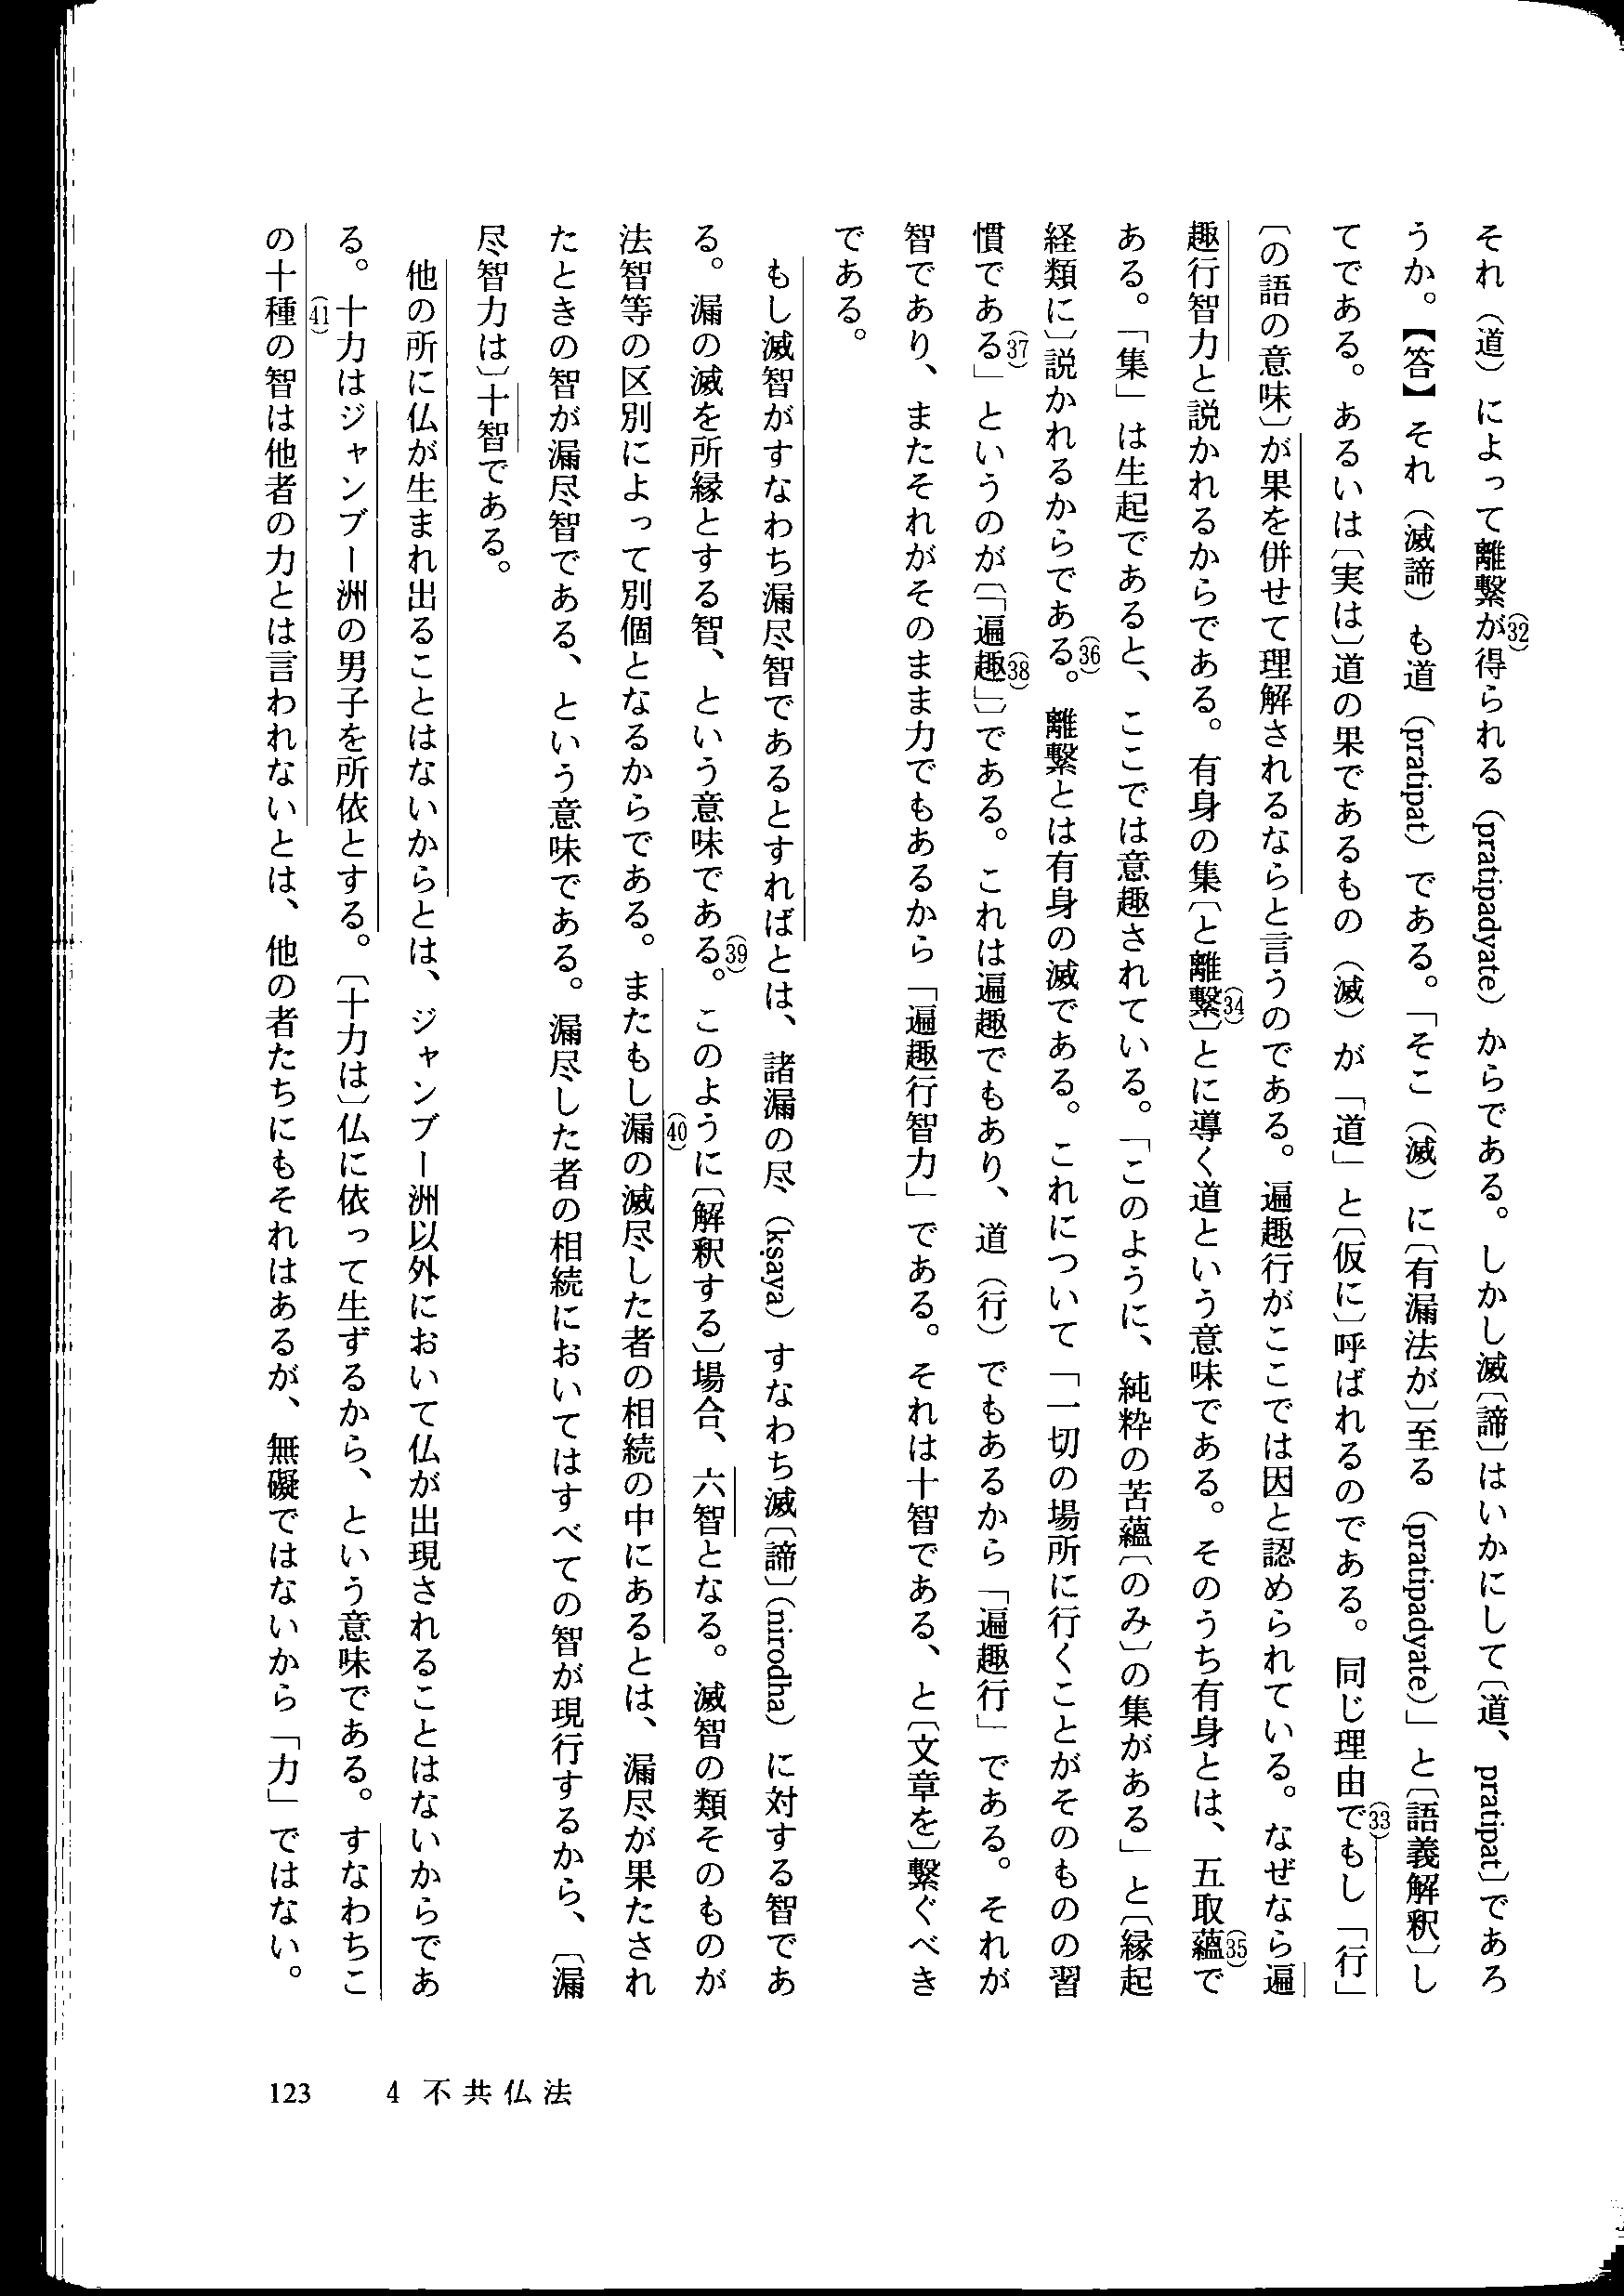 それ（道）によって離繋が(32)得られる（pratipadyate）からである。しかし滅〔諦〕はいかにして〔道、pratipat〕であろ
うか。【答】それ（滅諦）も道（pratipat）である。「そこ（滅）に〔有漏法が〕至る（pratipadyate）」と〔語義解釈〕し
てである。あるいは〔実は〕道の果であるもの（滅）が「道」と〔仮に〕呼ばれるのである。同じ理由で(33)もし「行」
〔の語の意味〕が果を併せて理解されるならと言うのである。遍趣行がここでは因と認められている。なぜなら遍
趣行智力と説かれるからである。有身の集〔と離繋(34)〕とに導く道という意味である。そのうち有身とは、五取蘊(35)で
ある。「集」は生起であると、ここでは意趣されている。「このように、純粋の苦蘊〔のみ〕の集がある」と〔縁起
経類に〕説かれるからである(36)。離繋とは有身の滅である。これについて「一切の場所に行くことがそのものの習
慣である(37)」というのが〔「遍趣(38)」〕である。これは遍趣でもあり、道（行）でもあるから「遍趣行」である。それが
智であり、またそれがそのまま力でもあるから「遍趣行智力」である。それは十智である、と〔文章を〕繋ぐべき
である。
もし滅智がすなわち漏尽智であるとすればとは、諸漏の尽（kṣaya）すなわち滅〔諦〕（nirodha）に対する智であ
る。漏の滅を所縁とする智、という意味である(39)。このように〔解釈する〕場合、六智となる。滅智の類そのものが
法智等の区別によって別個となるからである。またもし漏(40)の滅尽した者の相続の中にあるとは、漏尽が果たされ
たときの智が漏尽智である、という意味である。漏尽した者の相続においてはすべての智が現行するから、〔漏
尽智力は〕十智である。
他の所に仏が生まれ出ることはないからとは、ジャンブー洲以外において仏が出現されることはないからであ
る。十(41)力はジャンブー洲の男子を所依とする。〔十力は〕仏に依って生ずるから、という意味である。すなわちこ
の十種の智は他者の力とは言われないとは、他の者たちにもそれはあるが、無礙ではないから「力」ではない。
123　4 不共仏法